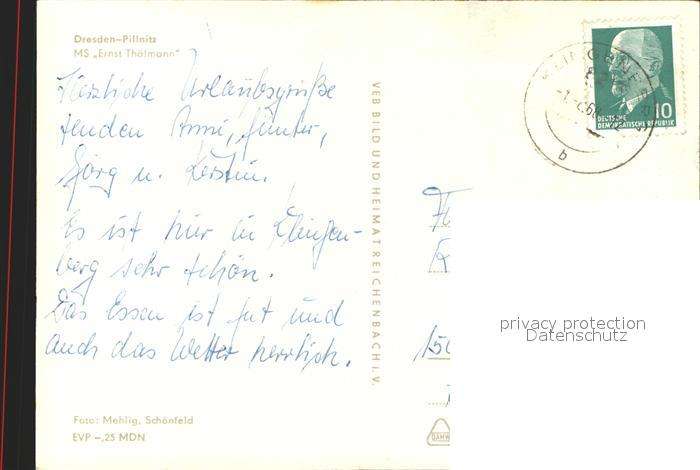 Dresden-Pillnitz
MS „Ernst Thälmann"
Herzliche Urlaubsgrüße
senden Anni, Günter,
Jörg u. Kerstin.
Es ist hier in Klingen-
berg sehr schön.
Das Essen ist gut und
auch das Wetter herrlich.
Foto: Mehlig, Schönfeld
EVP –,25 MDN
VEB BILD UND HEIMAT REICHENBACH I. V.
10
DEUTSCHE
DEMOKRATISCHE REPUBLIK
b
150
privacy protection
Datenschutz